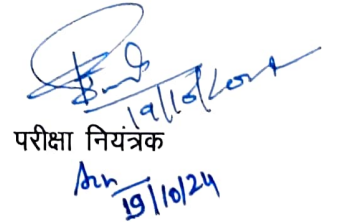 19/10/2024
परीक्षा नियंत्रक
19/10/24